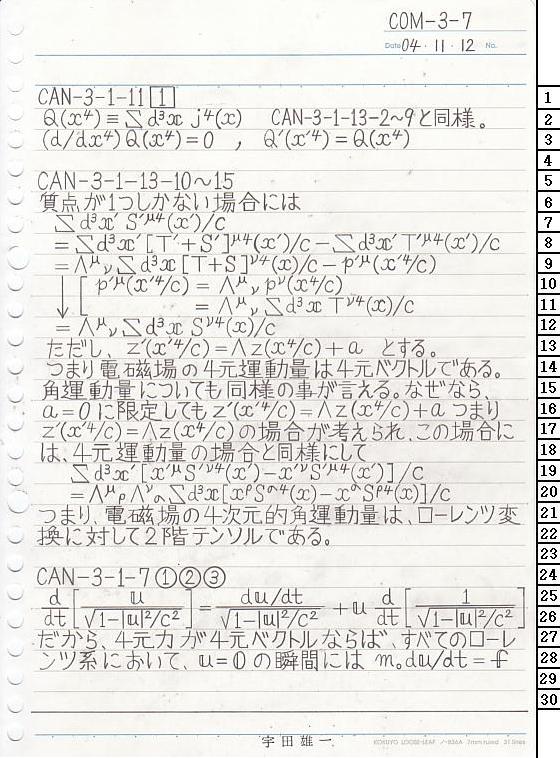 COM-3-7
Date 04・11・12 No.
CAN-3-1-11 [1]
Q(x⁴) ≡ ∑ d³x j⁴(x)　CAN-3-1-13-2～9と同様。
(d/dx⁴)Q(x⁴)=0 , Q'(x'⁴)=Q(x⁴)
CAN-3-1-13-10～15
質点が1つしかない場合には
∑ d³x' S'^μ4(x')/c
=∑ d³x' [T'+S']^μ4(x')/c－∑ d³x' T'^μ4(x')/c
=Λ^μ_ν ∑ d³x [T+S]^ν4(x)/c－p'^μ(x'⁴/c)
↓[ p'^μ(x'⁴/c) = Λ^μ_ν p^ν(x⁴/c)
= Λ^μ_ν ∑ d³x T^ν4(x)/c
=Λ^μ_ν ∑ d³x S^ν4(x)/c
ただし、z'(x'⁴/c)=Λz(x⁴/c)+a とする。
つまり電磁場の4元運動量は4元ベクトルである。
角運動量についても同様の事が言える。なぜなら、
a=0に限定してもz'(x'⁴/c)=Λz(x⁴/c)+a つまり
z'(x'⁴/c)=Λz(x⁴/c)の場合が考えられ、この場合に
は、4元運動量の場合と同様にして
∑ d³x' [x'^μ S'^ν4(x')－x'^ν S'^μ4(x')]/c
=Λ^μ_ρ Λ^ν_σ ∑ d³x[x^ρ S^σ4(x)－x^σ S^ρ4(x)]/c
つまり、電磁場の4次元的角運動量は、ローレンツ変
換に対して2階テンソルである。
CAN-3-1-7 ①②③
d/dt [ u/√(1-|u|²/c²) ] = (du/dt)/√(1-|u|²/c²) + u d/dt [ 1/√(1-|u|²/c²) ]
だから、4元力が4元ベクトルならば、すべてのローレ
ンツ系において、u=0の瞬間には m₀du/dt=f
宇田雄一
KOKUYO LOOSE-LEAF ノ-836A 7mm ruled 31 lines
1
2
3
4
5
6
7
8
9
10
11
12
13
14
15
16
17
18
19
20
21
22
23
24
25
26
27
28
29
30